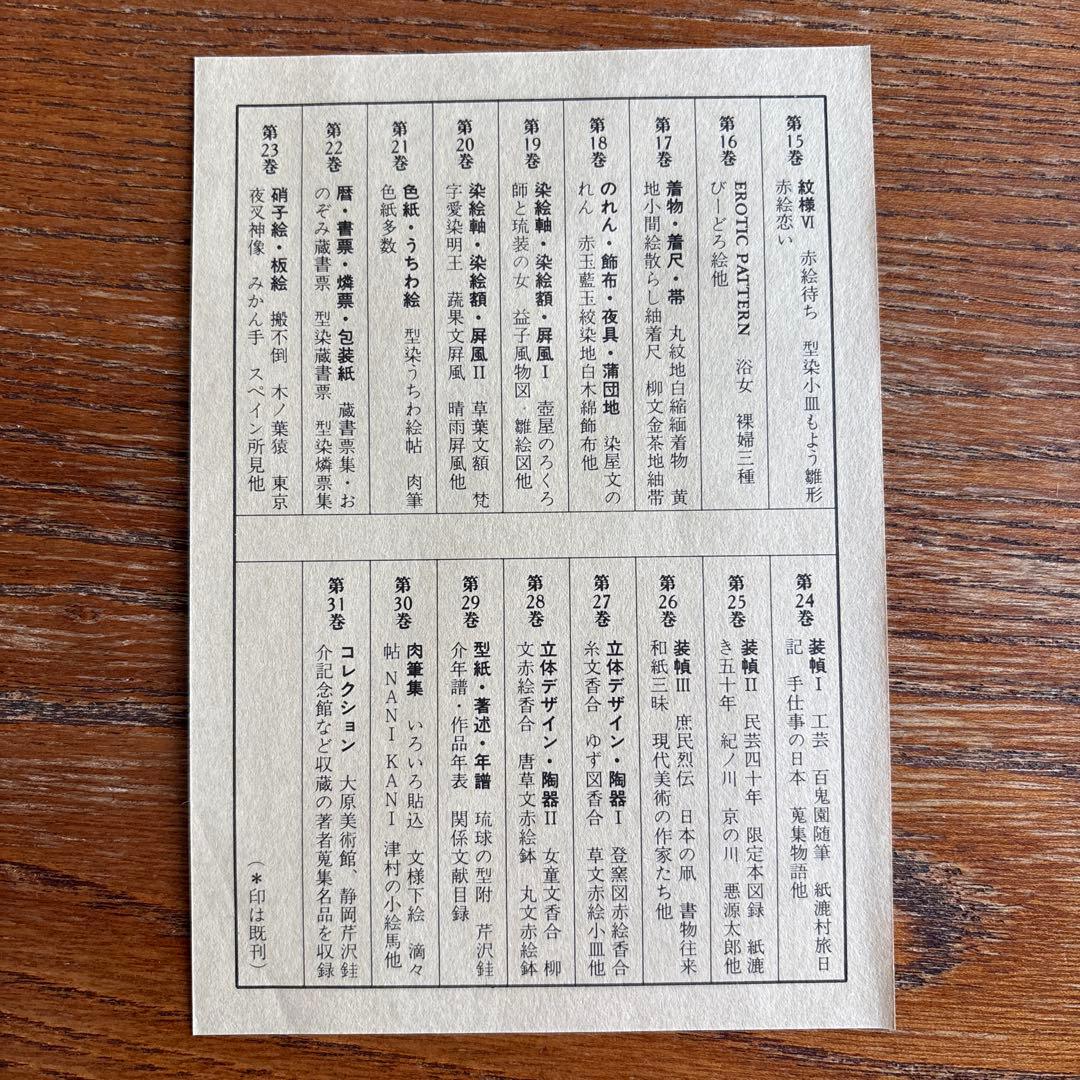 第15巻
紋様Ⅵ　赤絵待ち　型染小皿もよう雛形
赤絵恋い
第16巻
EROTIC PATTERN　浴女　裸婦三種
びーどろ絵他
第17巻
着物・着尺・帯　丸紋地白縮緬着物　黄
地小間絵散らし紬着尺　柳文金茶地紬帯
第18巻
のれん・飾布・夜具・蒲団地　染屋文の
れん　赤玉藍玉絞染地白木綿飾布他
第19巻
染絵軸・染絵額・屛風Ⅰ　壺屋のろくろ
師と琉装の女　益子風物図・雛絵図他
第20巻
染絵軸・染絵額・屛風Ⅱ　草葉文額　梵
字愛染明王　蔬果文屛風　晴雨屛風他
第21巻
色紙・うちわ絵　型染うちわ絵帖　肉筆
色紙多数
第22巻
暦・書票・燐票・包装紙　蔵書票集・お
のぞみ蔵書票　型染蔵書票　型染燐票集
第23巻
硝子絵・板絵　搬不倒　木ノ葉猿　東京
夜叉神像　みかん手　スペイン所見他
第24巻
装幀Ⅰ　工芸　百鬼園随筆　紙漉村旅日
記　手仕事の日本　蒐集物語他
第25巻
装幀Ⅱ　民芸四十年　限定本図録　紙漉
き五十年　紀ノ川　京の川　悪源太郎他
第26巻
装幀Ⅲ　庶民烈伝　日本の凧　書物往来
和紙三昧　現代美術の作家たち他
第27巻
立体デザイン・陶器Ⅰ　登窯図赤絵香合
糸文香合　ゆず図香合　草文赤絵小皿他
第28巻
立体デザイン・陶器Ⅱ　女童文香合　柳
文赤絵香合　唐草文赤絵鉢　丸文赤絵鉢
第29巻
型紙・著述・年譜　琉球の型附　芹沢銈
介年譜・作品年表　関係文献目録
第30巻
肉筆集　いろいろ貼込　文様下絵　滴々
帖　NANI KANI　津村の小絵馬他
第31巻
コレクション　大原美術館、静岡芹沢銈
介記念館など収蔵の著者蒐集名品を収録
（＊印は既刊）